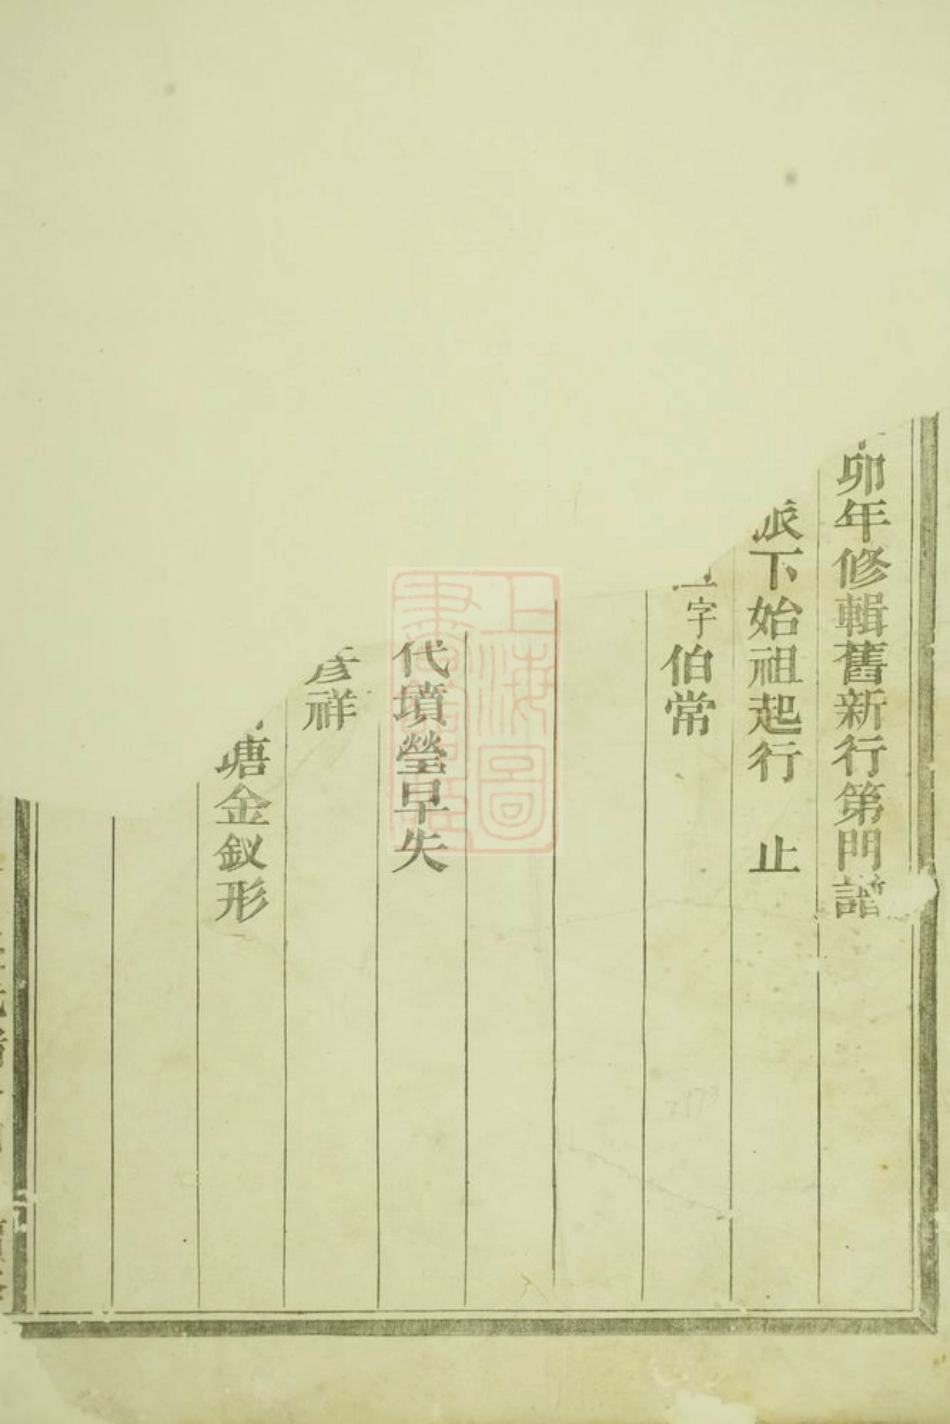 卯年修輯舊新行第門譜
派下始祖起行　止
字伯常
代墳瑩早失
彥祥
塘金釵形
上海圖書館藏